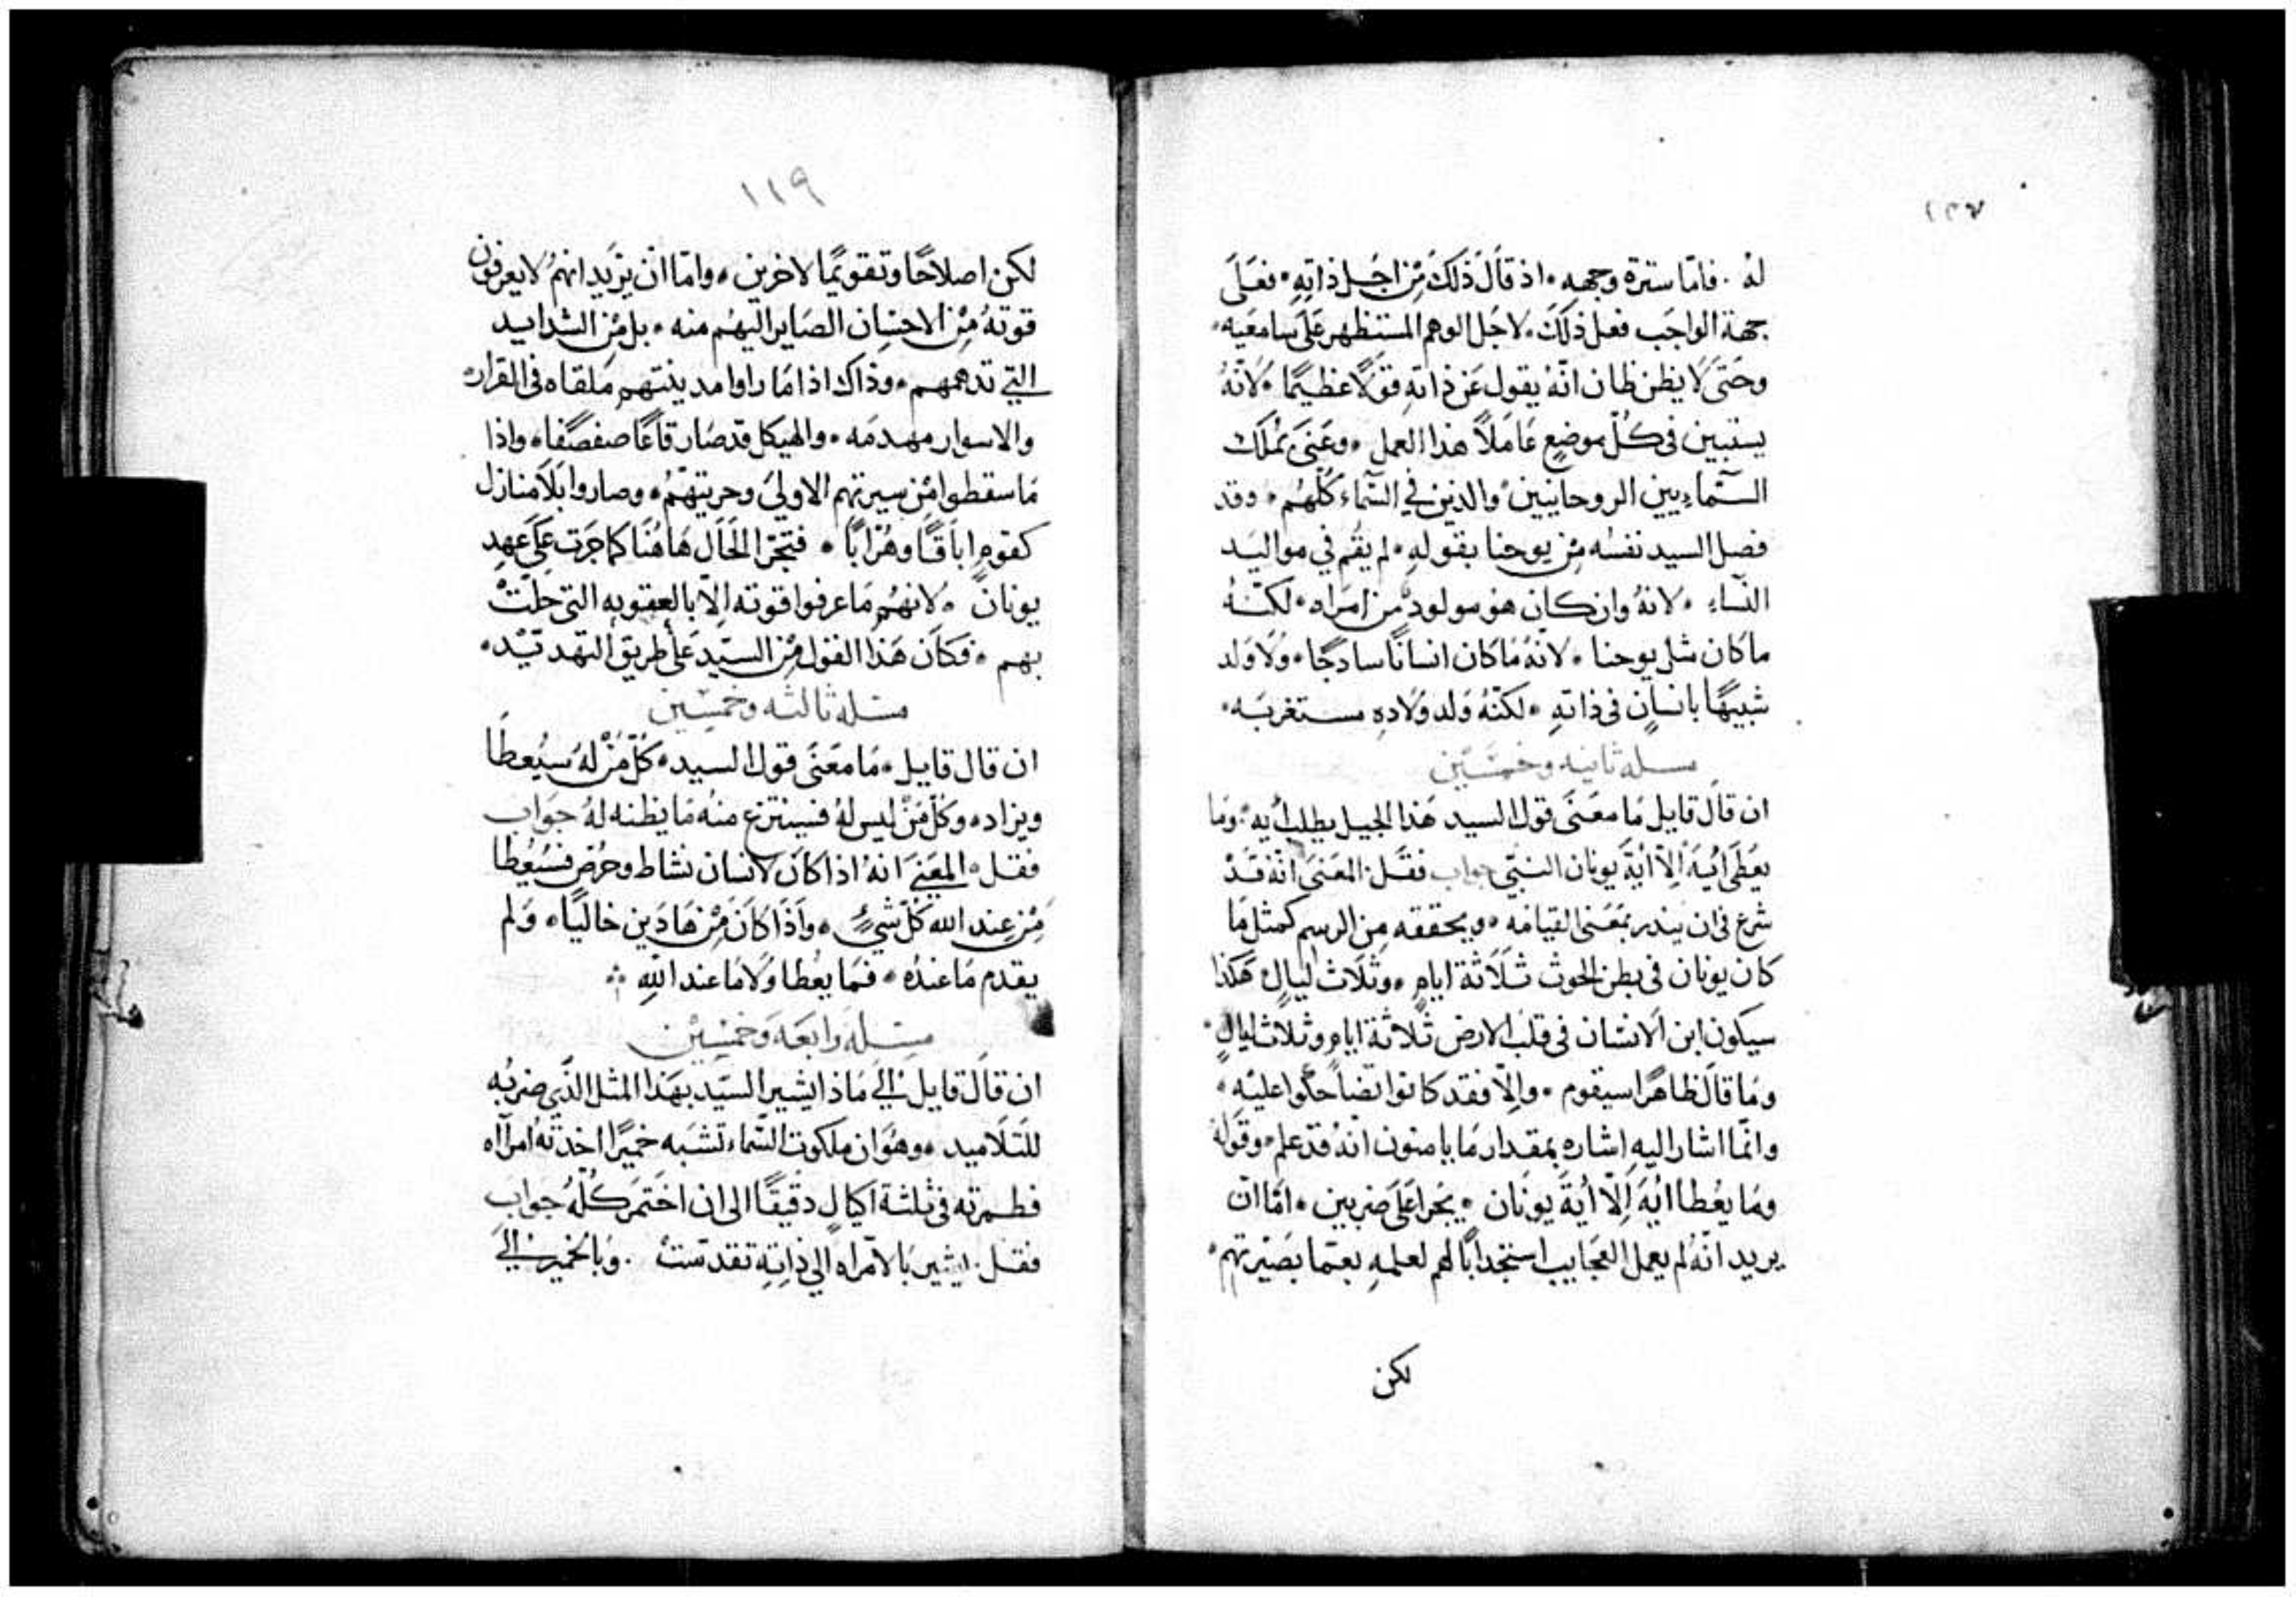 ١٣٧
له . فاما سترة وجهه . اذ قال ذلك من اجل ذاته . فعلى
جهة الواجب فعل ذلك . لاجل الوهم المستظهر على سامعيه .
وحتى لا يظن ظان انه يقول عن ذاته قولًا عظيمًا . لانه
يستبين في كل موضع عاملًا هذا العمل . وعنى بملك
السماءيين الروحانيين والذين في السماء كلهم . وقد
فصل السيد نفسه من يوحنا بقوله . لم يقم في مواليد
النساء . لانه وان كان هو مولود من امراه . لكنه
ما كان مثل يوحنا . لانه ما كان انسانًا سادجًا . ولا ولد
شبيهًا بانسان في ذاته . لكنه ولد ولاده مستغربه .
مسله ثانيه وخمسين
ان قال قايل ما معنى قول السيد هذا الجيل يطلب ايه . وما
يعطى ايه الا اية يونان النبي جواب فقل . المعنى انه قد
شرع في ان ينذر بمعنى القيامه . ويحققه من الرسم كمثل ما
كان يونان في بطن الحوث ثلاثة ايام . وثلاث ليال هكذا
سيكون ابن الانسان في قلب الارض ثلاثة ايام وثلاث ليال .
وما قال ظاهرًا سيقوم . والا فقد كانوا تضاحكوا عليه .
وانما اشار اليه اشاره بمقدار ما يامنون انه قد علم . وقوله
وما يعطا ايه الا اية يونان . يجرا على ضربين . اما ان
يريد انه لم يعمل العجايب استجدابًا لهم لعلمه بعما بصيرتهم .
لكن
١١٩
لكن اصلاحًا وتقويمًا لاخرين . واما ان يريد انهم لا يعرفون
قوته من الاحسان الصاير اليهم منه . بل من الشدايد
التي تدهمهم . وذاك اذا ما راوا مدينتهم ملقاه في القرار
والاسوار مهدمه . والهيكل قد صار قاعًا صفصفًا . واذا
ما سقطوا من سيرتهم الاولى وحريتهم . وصاروا بلا منازل
كقوم اباقًا وهرابًا . فتجرا الحال هاهنا كما جرت على عهد
يونان . لانهم ما عرفوا قوته الا بالعقوبه التي حلت
بهم . فكان هذا القول من السيد على طريق التهدتيد .
مسله ثالثه وخمسين
ان قال قايل . ما معنى قول السيد . كل من له سيعطا
ويزاد . وكل من ليس له فسينتزع منه ما يظنه له جواب
فقل . المعنى انه اذا كان لانسان نشاط وحرص فسيعطا
من عند الله كل شيء . واذا كان من هادين خاليًا . ولم
يقدم ما عنده . فما يعطا ولا ما عند الله .
مسله رابعه وخمسين
ان قال قايل الى ماذا يشير السيد بهذا المثل الذي ضربه
للتلاميد . وهو ان ملكوت السماء تشبه خميرًا اخدته امراه
فطمرته في ثلثة اكيال دقيقًا الى ان اختمر كله جواب
فقل . يشير بالامراه الى ذاته تقدست . وبالخمير الى